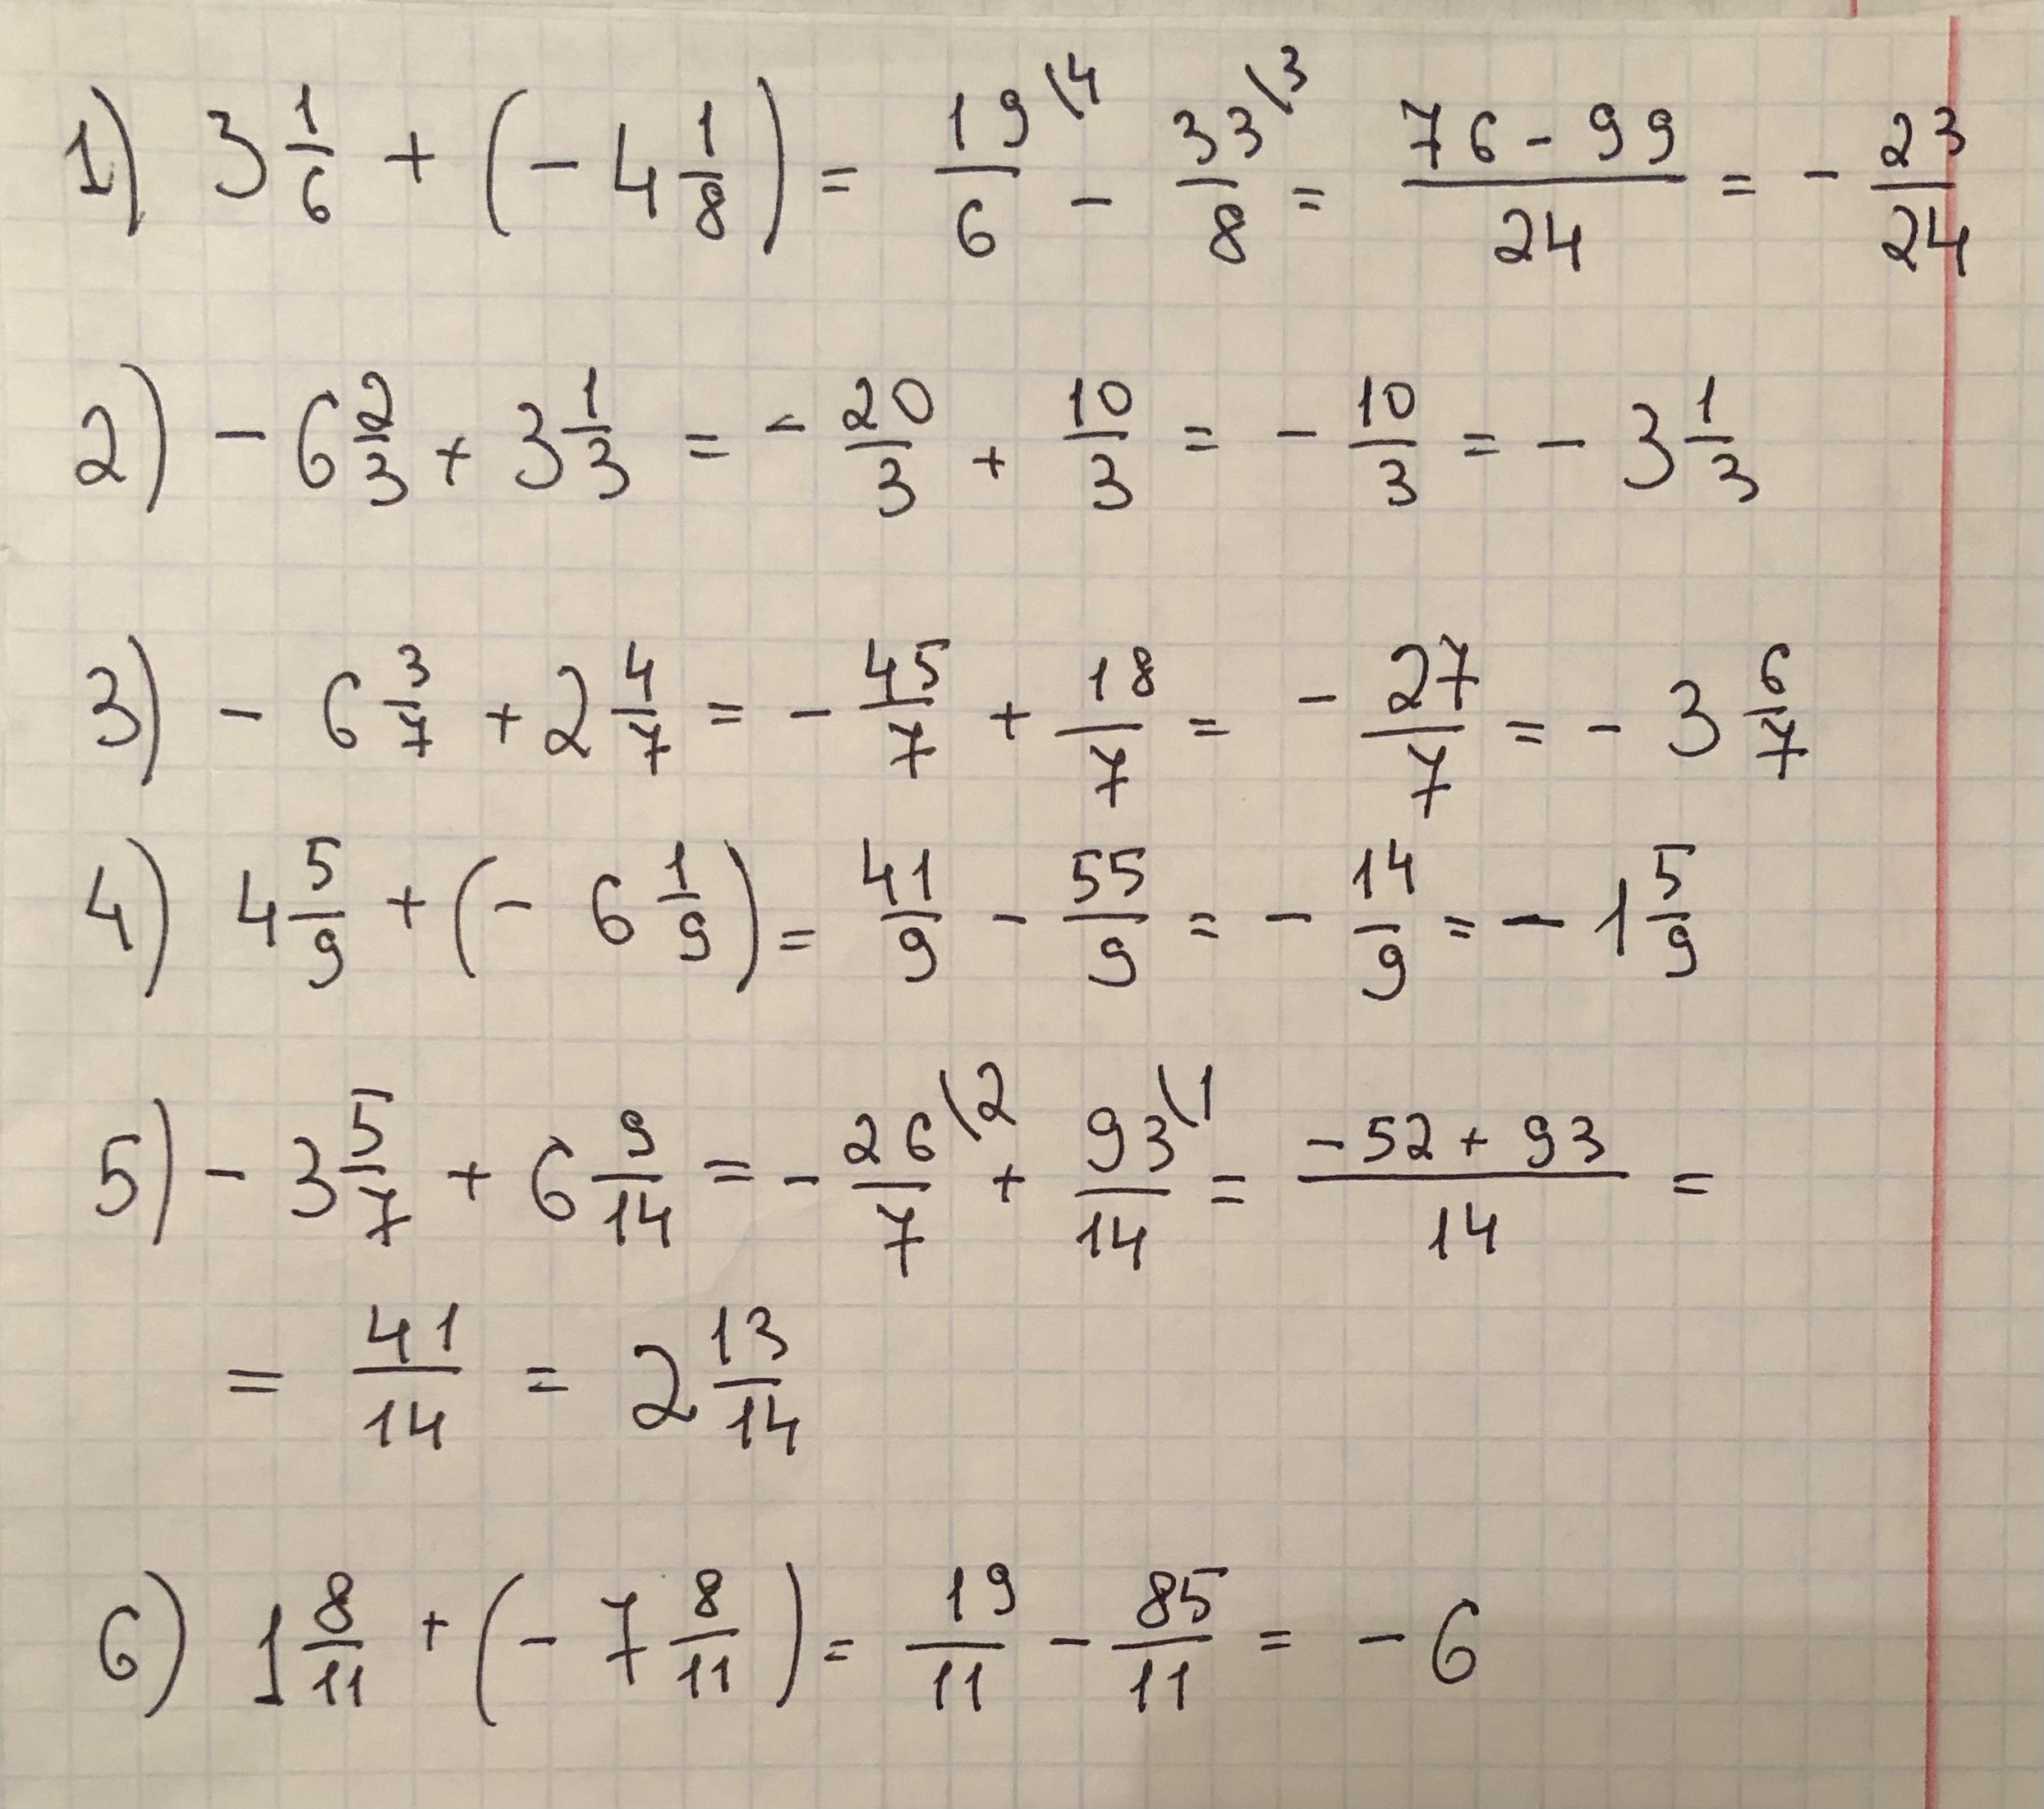 1) 3 1/6 + (- 4 1/8) = 19/6 \4 - 33/8 \3 = (76 - 99)/24 = - 23/24
2) - 6 2/3 + 3 1/3 = - 20/3 + 10/3 = - 10/3 = - 3 1/3
3) - 6 3/7 + 2 4/7 = - 45/7 + 18/7 = - 27/7 = - 3 6/7
4) 4 5/9 + (- 6 1/9) = 41/9 - 55/9 = - 14/9 = - 1 5/9
5) - 3 5/7 + 6 9/14 = - 26/7 \2 + 93/14 \1 = (-52 + 93)/14 =
= 41/14 = 2 13/14
6) 1 8/11 + (- 7 8/11) = 19/11 - 85/11 = - 6